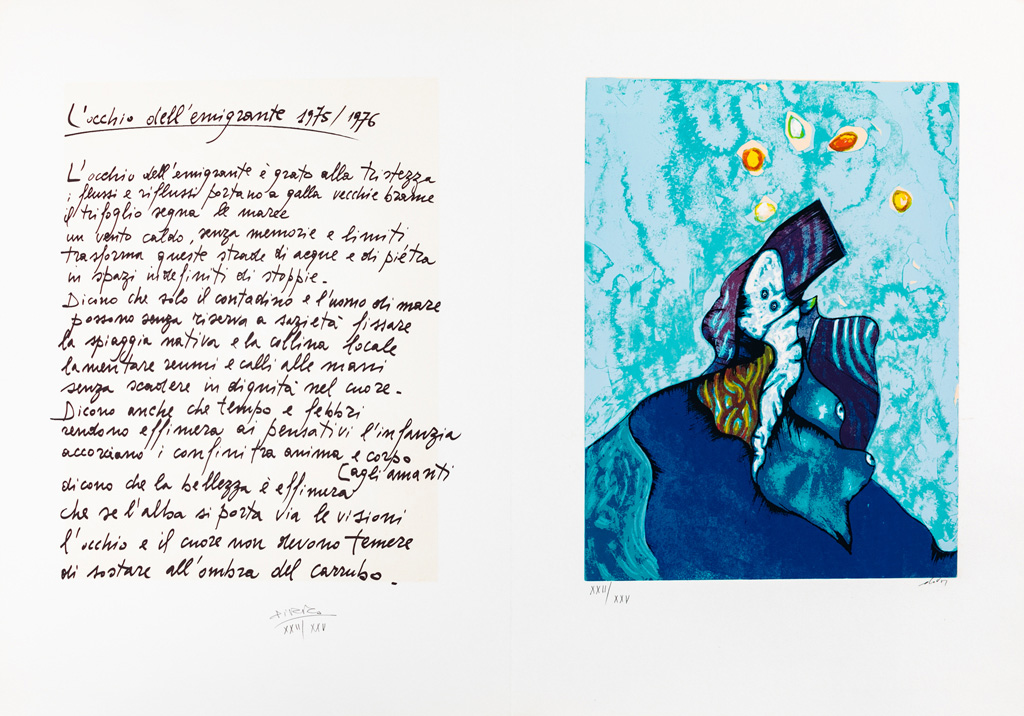 L'occhio dell'emigrante 1975/1976
L'occhio dell'emigrante è grato alla tristezza
i flussi e riflussi portano a galla vecchie brame
il trifoglio segna le maree
un vento caldo, senza memorie e limiti
trasforma queste strade di acque e di piétra
in spazi indefiniti di stoppie.
Dicino che solo il contadino e l'uomo di mare
possono senza riserva a sazietà fissare
la spiaggia nativa e la collina locale
lamentare reumi e calli alle mani
senza scadere in dignità nel cuore.
Dicono anche che tempo e febbri
rendono effimera ai pensativi l'infanzia
accorciano i confini tra anima e corpo
(agli amanti
dicono che la bellezza è effimera
che se l'alba si porta via le visioni
l'occhio e il cuore non devono temere
di sostare all'ombra del carrubo.
XXII/XXV
XXII/XXV